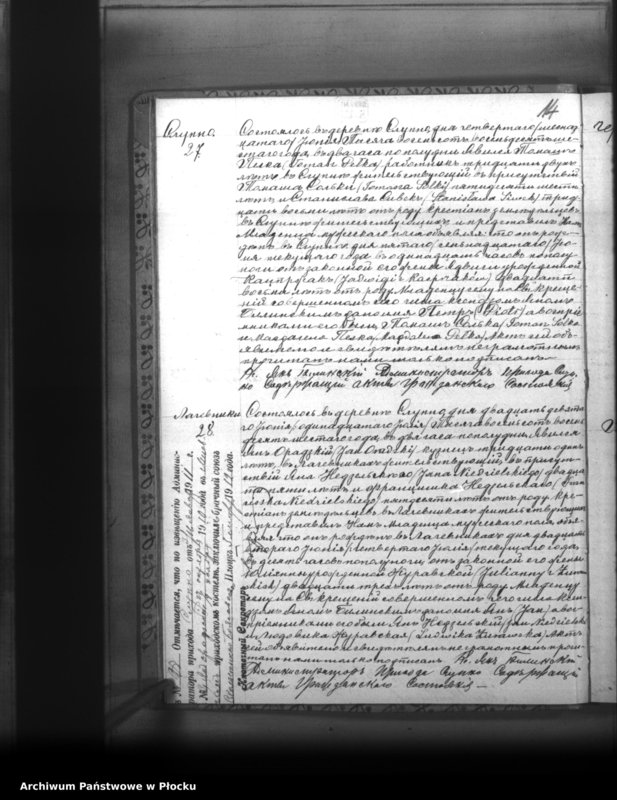 14
Слупно
27
Состоялось въ деревнѣ Слупно дня четвертаго /шестнад
цатаго/ Іюня Тысяча восемьсотъ восемьдесятъ ше-
стаго года, въ два часа по полудни. Явился Томашъ
Пелка /Tomasz Pełka/ работникъ тридцати двухъ
лѣтъ въ Слупнѣ жительствующій въ присутствіи
Томаша Сольки /Tomasza Solki/ пятидесяти шести
лѣтъ и Станислава Сивекъ /Stanisława Siwek/ трид-
цати восьми лѣтъ отъ роду крестьянъ земледѣльцовъ
въ Слупнѣ жительствующихъ и представилъ Намъ
Младенца мужескаго пола объявляя что онъ ро-
дился въ Слупнѣ дня пятаго /семнадцатаго/ Ію-
ня текущаго года въ одинадцать часовъ по полу-
ночи отъ законной его жены Ядвиги урожденной
Кацпржакъ /Jadwigi z Kacprzaków/ двадцати
восьми лѣтъ отъ роду. Младенцу сему на Св. креще-
ніи совершенномъ сего числа ксендзомъ Яномъ
Билинскимъ дано имя Петръ /Piotr/ а воспріе-
мниками его были Томашъ Солька /Tomasz Solka
и Магдалена Пелка /Magdalena Pełka/. Актъ сей объ-
являющему и свидѣтелямъ неграмотнымъ
прочитанъ нами только подписанъ.
Кс. Янъ Билинскій Администраторъ Прихода Слуп-
но Содержащій акты Гражданскаго Состоянія
Лагевники
28
Состоялось въ деревнѣ Слупно дня двадцать девята-
го Іюня /одинадцатаго Іюля/ Тысяча восемьсотъ восемь
десятъ шестаго года, въ два часа по полудни. Явился
Янъ Орадзкій /Jan Oradzki/ кузнецъ тридцати одинъ
лѣтъ, въ Лагевникахъ жительствующій, въ присут-
ствіи Яна Недзельскаго /Jana Niedzielskiego/ двадца-
ти пяти лѣтъ и Францишка Недзельскаго /Fran-
ciszka Niedzielskiego/ пятидесяти лѣтъ отъ роду кре-
стьянъ земледѣльцевъ въ Лагевникахъ жительствующихъ
и представилъ Намъ Младенца мужескаго пола объя-
вляя что онъ родился въ Лагевникахъ дня двадцать
втораго Іюня /четвертаго Іюля/ текущаго года,
въ девять часовъ по полуночи отъ законной его жены
Юліанны урожденной Журавской /Julianny z Żuraw-
skich/ двадцати трехъ лѣтъ отъ роду. Младенцу
сему на Св. крещеніи совершенномъ сего числа ксен-
дзомъ Яномъ Билинскимъ дано имя Янъ /Jan/ а вос-
пріемниками его были Янъ Недзельскій /Jan Niedzielski
и Людовика Журавская /Ludwika Żurawska/. Актъ
сей объявляющему и свидѣтелямъ неграмотнымъ прочи-
танъ нами только подписанъ. Кс. Янъ Билинскій
Администраторъ Прихода Слупно Содержащій
акты Гражданскаго Состоянія
Отмѣчается, что по извѣщенію Админис-
ратора прихода
1912 года
приходскомъ костелѣ, заключилъ брачный союз
1912 года.
Ипотечный Секретарь
Archiwum Państwowe w Płocku